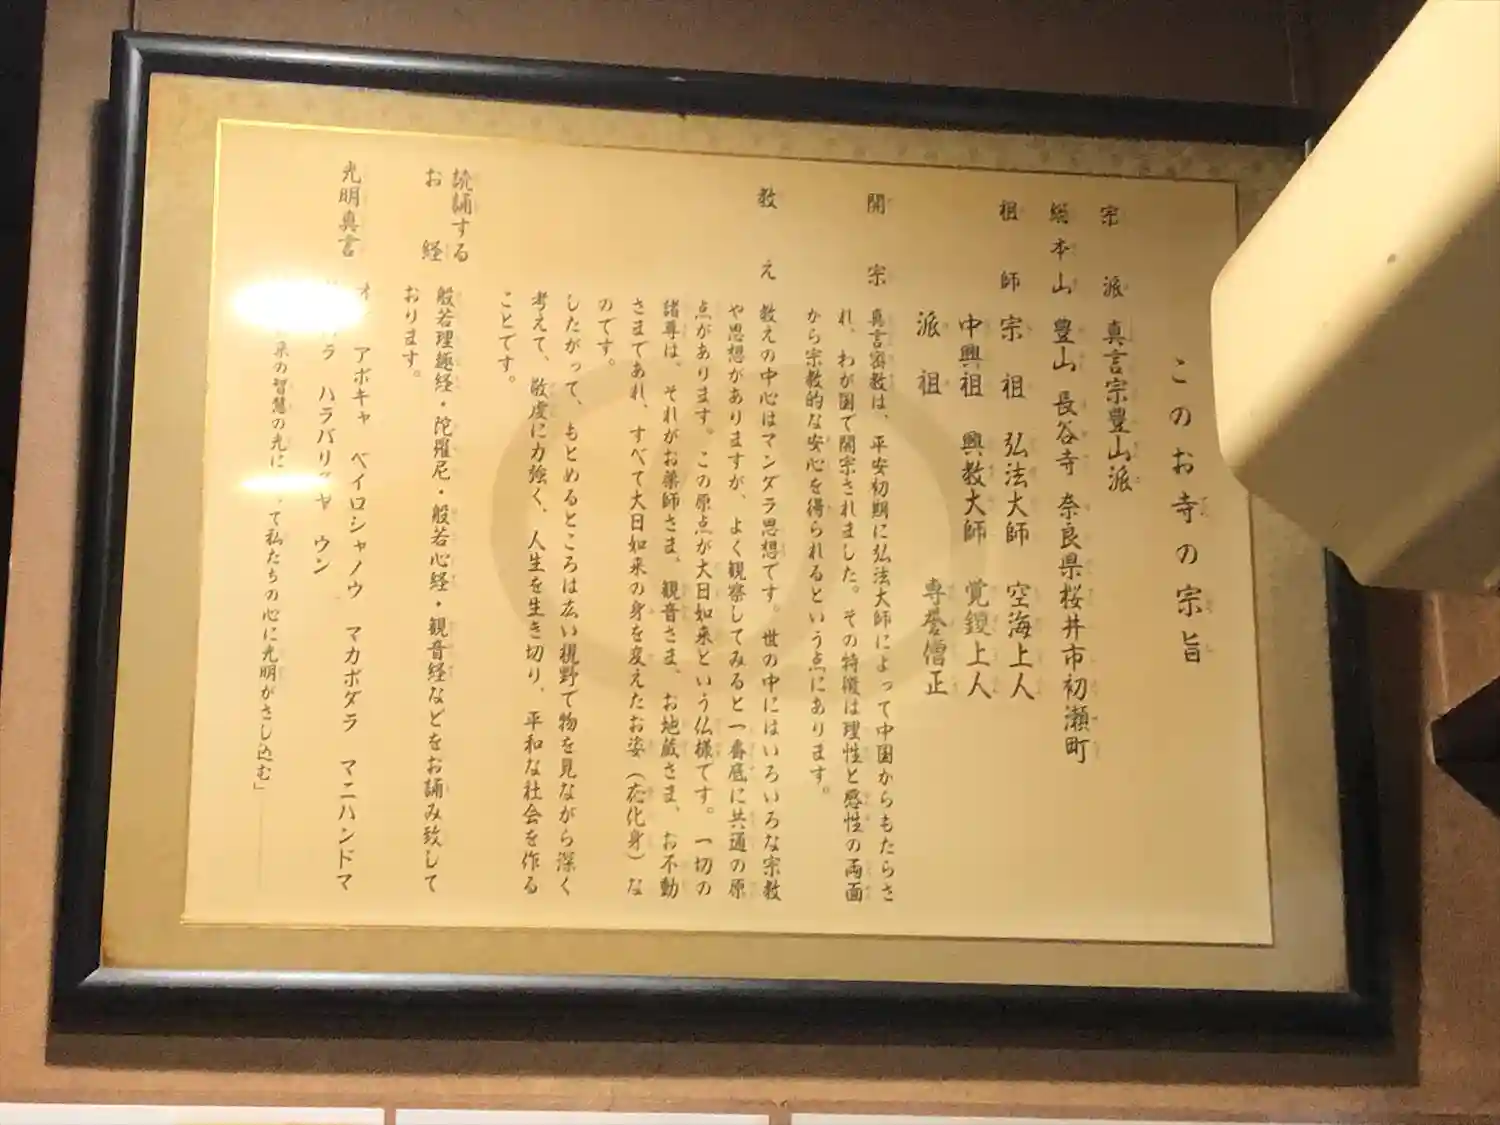 このお寺の宗旨
宗派 真言宗豊山派
総本山 豊山 長谷寺 奈良県桜井市初瀬町
祖師 宗祖 弘法大師 空海上人
中興祖 興教大師 覚鑁上人
派祖 専誉僧正
開宗 真言密教は、平安初期に弘法大師によって中国からもたらさ
れ、わが国で開宗されました。その特徴は理性と感性の両面
から宗教的な安心を得られるという点にあります。
教え 教えの中心はマンダラ思想です。世の中にはいろいろな宗教
や思想がありますが、よく観察してみると一番底に共通の原
点があります。この原点が大日如来という仏様です。一切の
諸尊は、それがお薬師さま、観音さま、お地蔵さま、お不動
さまであれ、すべて大日如来の身を変えたお姿(応化身)な
のです。
したがって、もとめるところは広い視野で物を見ながら深く
考えて、敬虔に力強く、人生を生き切り、平和な社会を作る
ことです。
読誦する
お経 般若理趣経・陀羅尼・般若心経・観音経などをお誦み致して
おります。
光明真言 オ アボキャ ベイロシャノウ マカボダラ マニハンドマ
ラ ハラバリ ヤ ウン
来の智慧の光に って私たちの心に光明がさし込む」